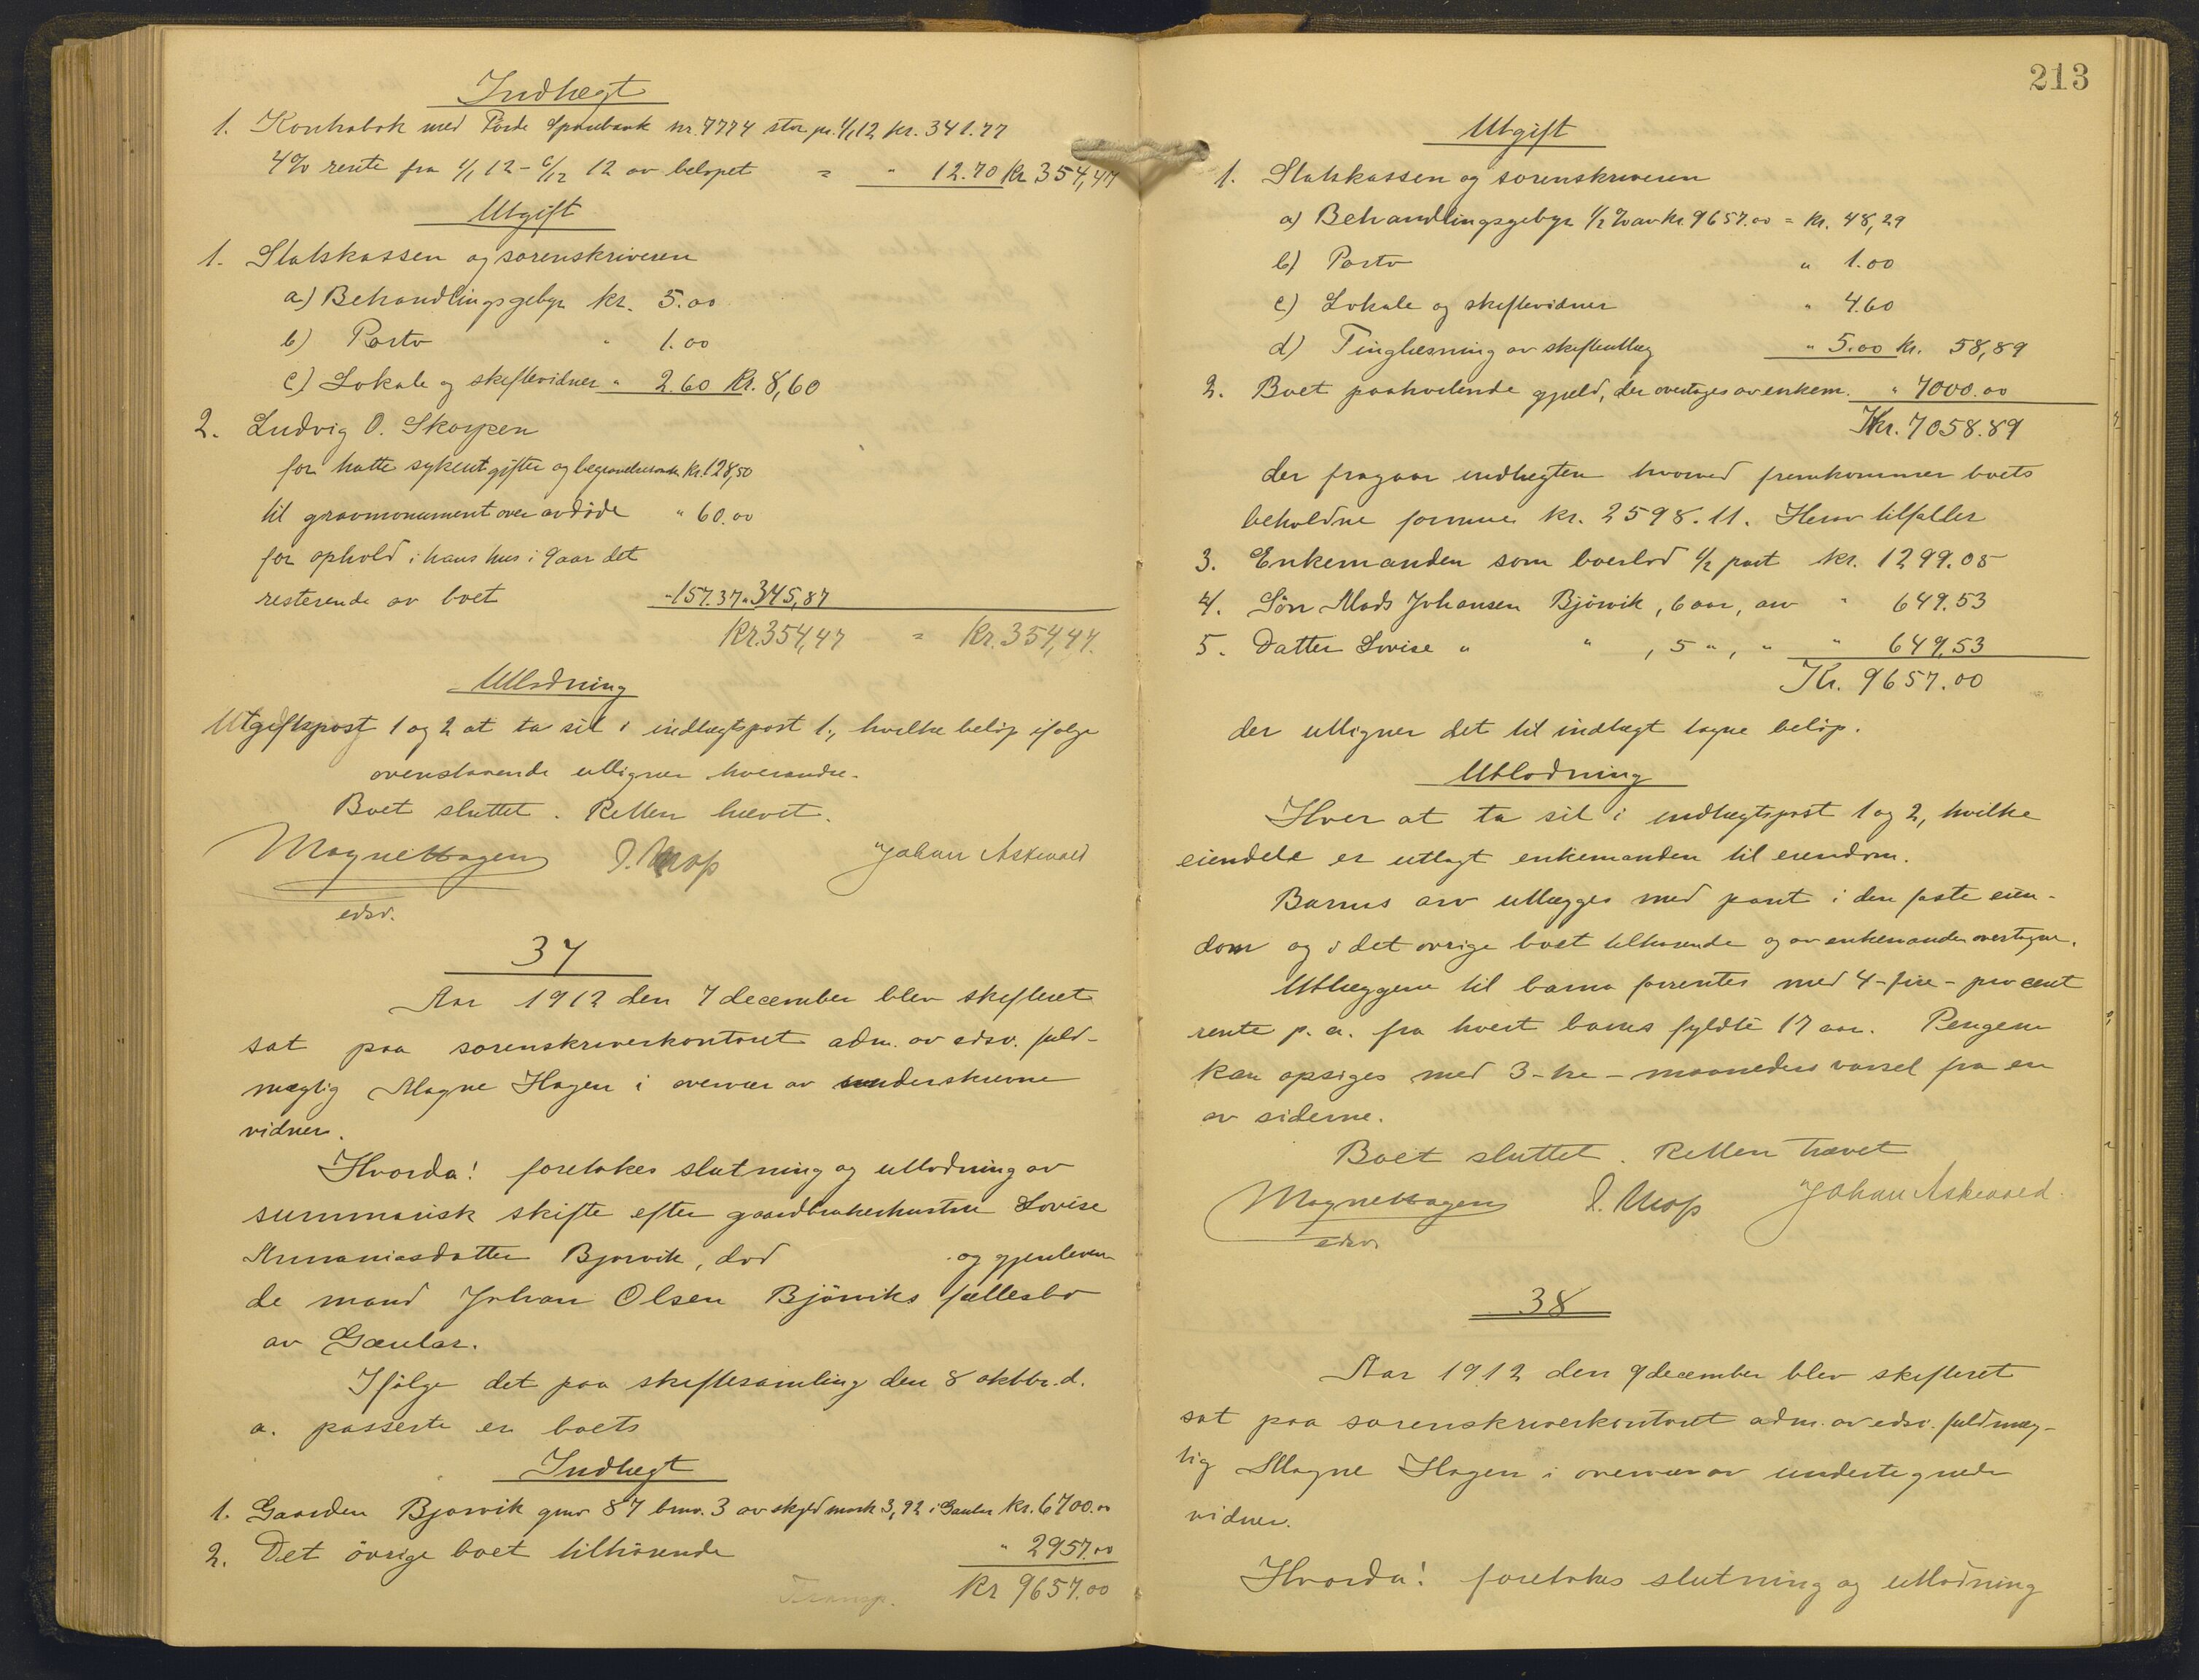 Indtægt
1. Kontrabok med Førde Sparebank nr. 7774 stor pr. 1/1 12 kr. 341.77
4% rente fra 1/1 12 - 6/12 12 av beløpet = " 12.70 Kr 354,47
Utgift
1. Statskassen og sorenskriveren
a) Behandlingsgebyr kr. 5.00
b) Porto " 1.00
c) Lokale og skiftevidner " 2.60 Kr. 8,60
2. Ludvig O. Skorpen
for hatte sykeutgifter og begravelsesomk. Kr. 128,50
til gravmonument over avdöde " 60.00
for ophold i hans hus i 9 aar det
resterende av boet " 157.37 " 345,87
Kr. 354,47 = Kr. 354,47.
Utlodning
Utgiftspost 1 og 2 at ta sit i indtægtspost 1., hvilke beløp ifølge
ovenstaaende utligner hverandre.
Boet sluttet. Retten hævet.
Magne Hagen J. Mosp Johan Askevold
edsv.
37
Aar 1912 den 7 december blev skifteret
sat paa sorenskriverkontoret adm. av edsv. fuld-
mægtig Magne Hagen i overvær av underskrevne
vidner.
Hvorda! foretokes slutning og utlodning av
summarisk skifte efter gaardbrukerhustru Lovise
Ananiasdatter Bjorvik, død og gjenleven-
de mand Johan Olsen Björviks fællesbo
av Gaular.
Ifölge det paa skiftesamling den 8 oktbr. d.
a. passerte er boets
Indtægt
1. Gaarden Bjorvik gnr 87 bnr. 3 av skyld mark 3,92 i Gaular kr. 6700.00
2. Det övrige boet tilhörende " 2957.00
Transp. Kr 9657.00
213
Utgift
1. Statskassen og sorenskriveren
a) Behandlingsgebyr 1/2 % av kr. 9657.00 = Kr. 48,29
b) Porto " 1.00
c) Lokale og skiftevidner " 4.60
d) Tinglæsning av skifteutlæg " 5.00 Kr. 58,89
2. Boet paahvilende gjæld, der overtages av enkem. " 7000.00
Kr. 7058.89
der fragaar indtægten hvorved fremkommer boets
beholdne formue kr. 2598.11. Herav tilfalder
3. Enkemanden som boeslod 1/2 part kr. 1299.05
4. Sön Mads Johansen Bjövik, 6 aar, arv " 649.53
5. Datter Lovise " " , 5 " , " " 649,53
Kr. 9657.00
der utligner det til indtægt tagne belöp.
Utlodning
Hver at ta sit i indtægtspost 1 og 2, hvilke
eiendele er utlagt enkemanden til eiendom.
Barnas arv utlægges med pant i den faste eien-
dom og i det ovrige boet tilhørende og av enkemanden overtagne.
Utlæggene til barna forrentes med 4-fire-procent
rente p.a. fra hvert barns fyldte 17 aar. Pengene
kan opsiges med 3-tre-maaneders varsel fra en
av siderne.
Boet sluttet. Retten hævet
Magne Hagen J. Mosp Johan Askevold.
edsv.
38
Aar 1912 den 9 december blev skifteret
sat paa sorenskriverkontoret adm. av edsv. fuldmæg-
tig Magne Hagen i overvær av undertegnede
vidner.
Hvorda! foretokes slutning og utlodning